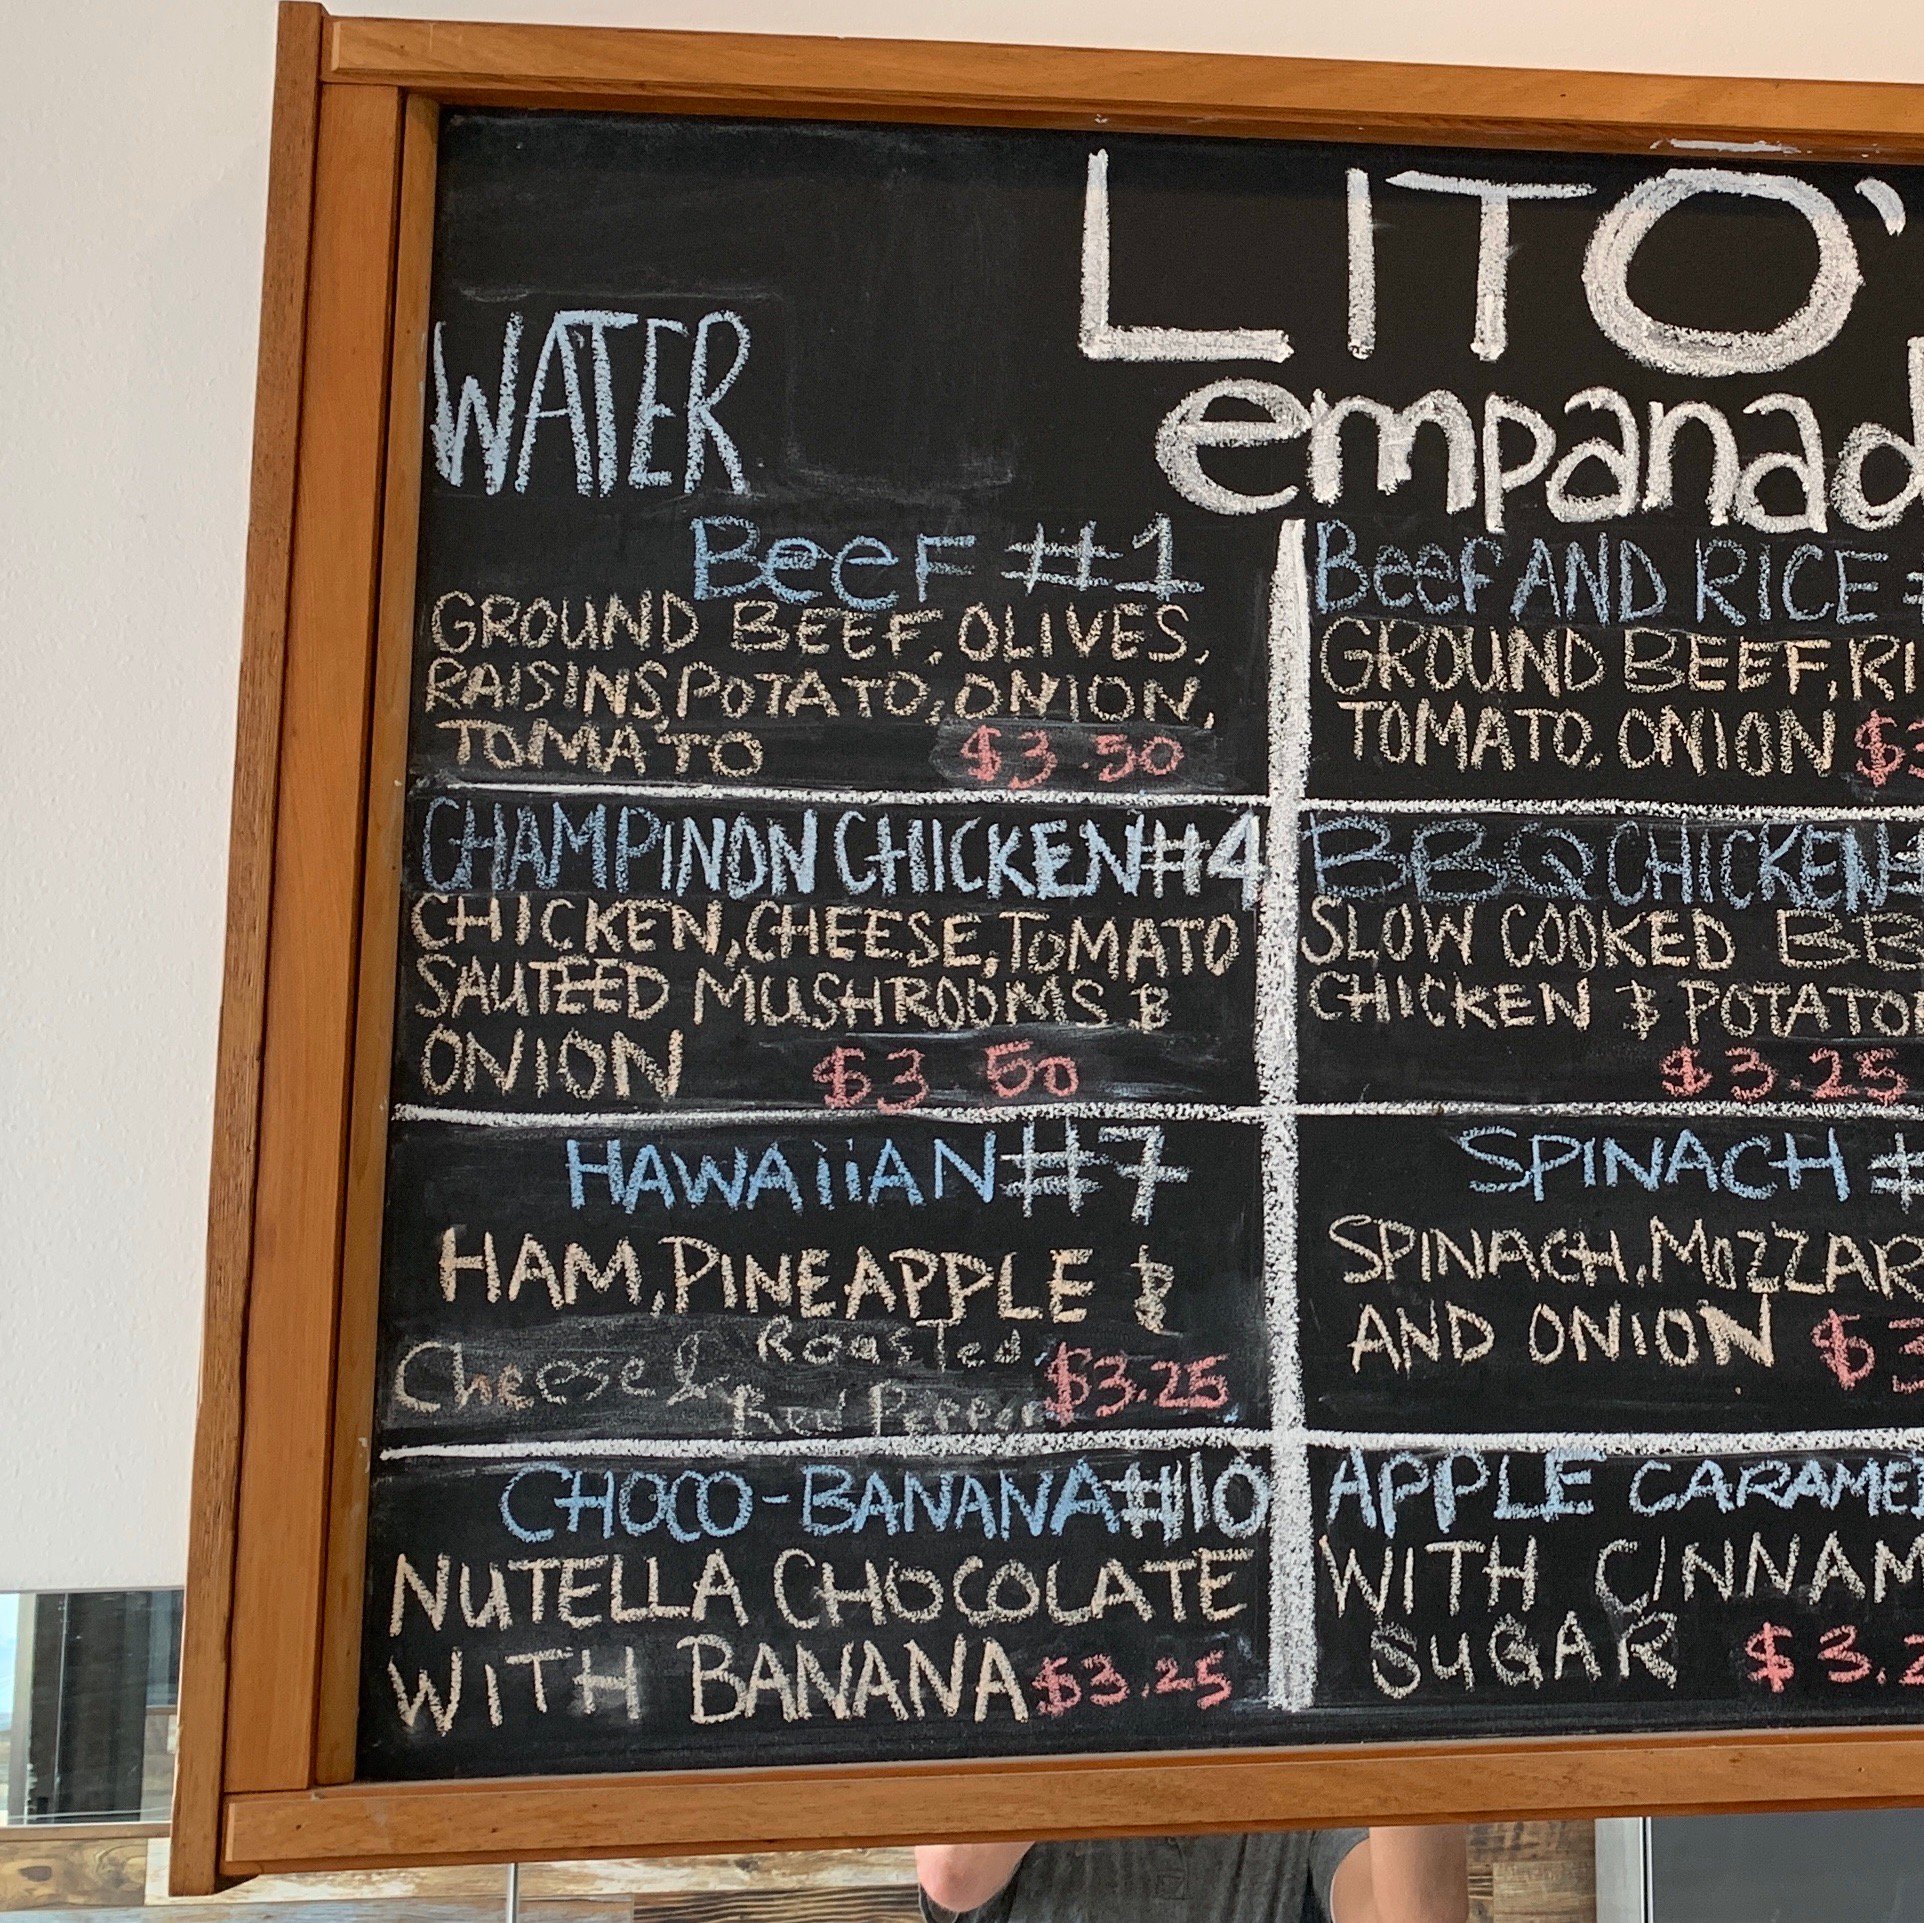 LITO'
empanad
WATER
Beef #1
GROUND BEEF, OLIVES,
RAISINS, POTATO, ONION,
TOMATO $3.50
CHAMPINON CHICKEN #4
CHICKEN, CHEESE, TOMATO
SAUTEED MUSHROOMS &
ONION $3 50
HAWAiiAN #7
HAM, PINEAPPLE &
Cheese & Roasted
Red Pepper $3.25
CHOCO-BANANA #10
NUTELLA CHOCOLATE
WITH BANANA $3.25
Beef AND RICE
GROUND BEEF, RI
TOMATO, ONION $3
BBQ CHICKEN
SLOW COOKED BB
CHICKEN & POTATO
$3.25
SPINACH #
SPINACH, MOZZAR
AND ONION $3
APPLE CARAME
WITH CINNAM
SUGAR $3.2